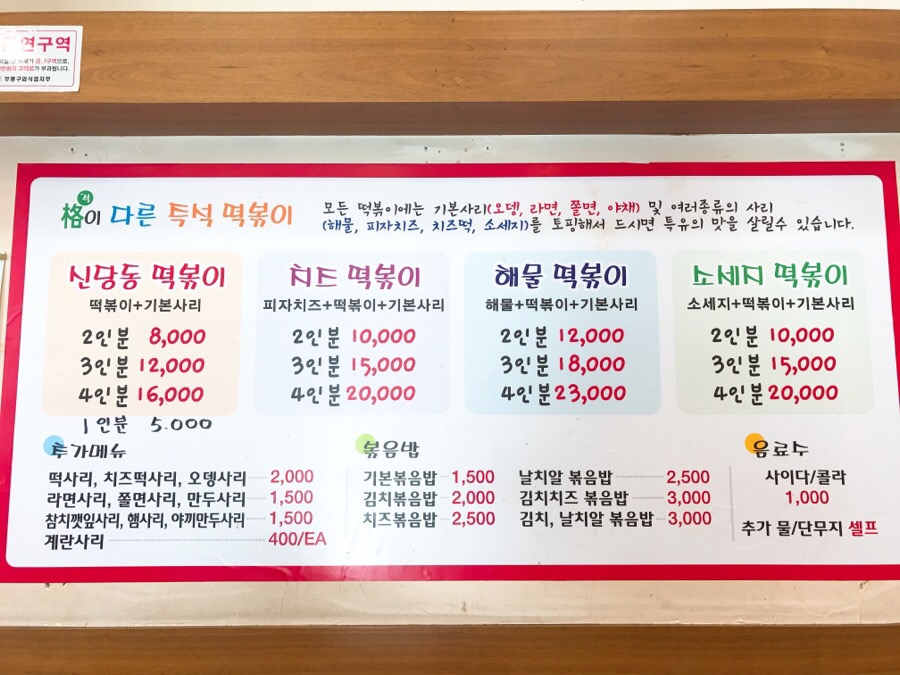 연구역
부평구외식업지부
格이 다른 즉석 떡볶이
모든 떡볶이에는 기본사리(오뎅, 라면, 쫄면, 야채) 및 여러종류의 사리
(해물, 피자치즈, 치즈떡, 소세지)를 토핑해서 드시면 특유의 맛을 살릴수 있습니다.
신당동 떡볶이
떡볶이+기본사리
2인분 8,000
3인분 12,000
4인분 16,000
1인분 5.000
치즈 떡볶이
피자치즈+떡볶이+기본사리
2인분 10,000
3인분 15,000
4인분 20,000
해물 떡볶이
해물+떡볶이+기본사리
2인분 12,000
3인분 18,000
4인분 23,000
소세지 떡볶이
소세지+떡볶이+기본사리
2인분 10,000
3인분 15,000
4인분 20,000
추가메뉴
떡사리, 치즈떡사리, 오뎅사리 2,000
라면사리, 쫄면사리, 만두사리 1,500
참치깻잎사리, 햄사리, 야끼만두사리 1,500
계란사리 400/EA
볶음밥
기본볶음밥 1,500
김치볶음밥 2,000
치즈볶음밥 2,500
날치알 볶음밥 2,500
김치치즈 볶음밥 3,000
김치, 날치알 볶음밥 3,000
음료수
사이다/콜라
1,000
추가 물/단무지 셀프